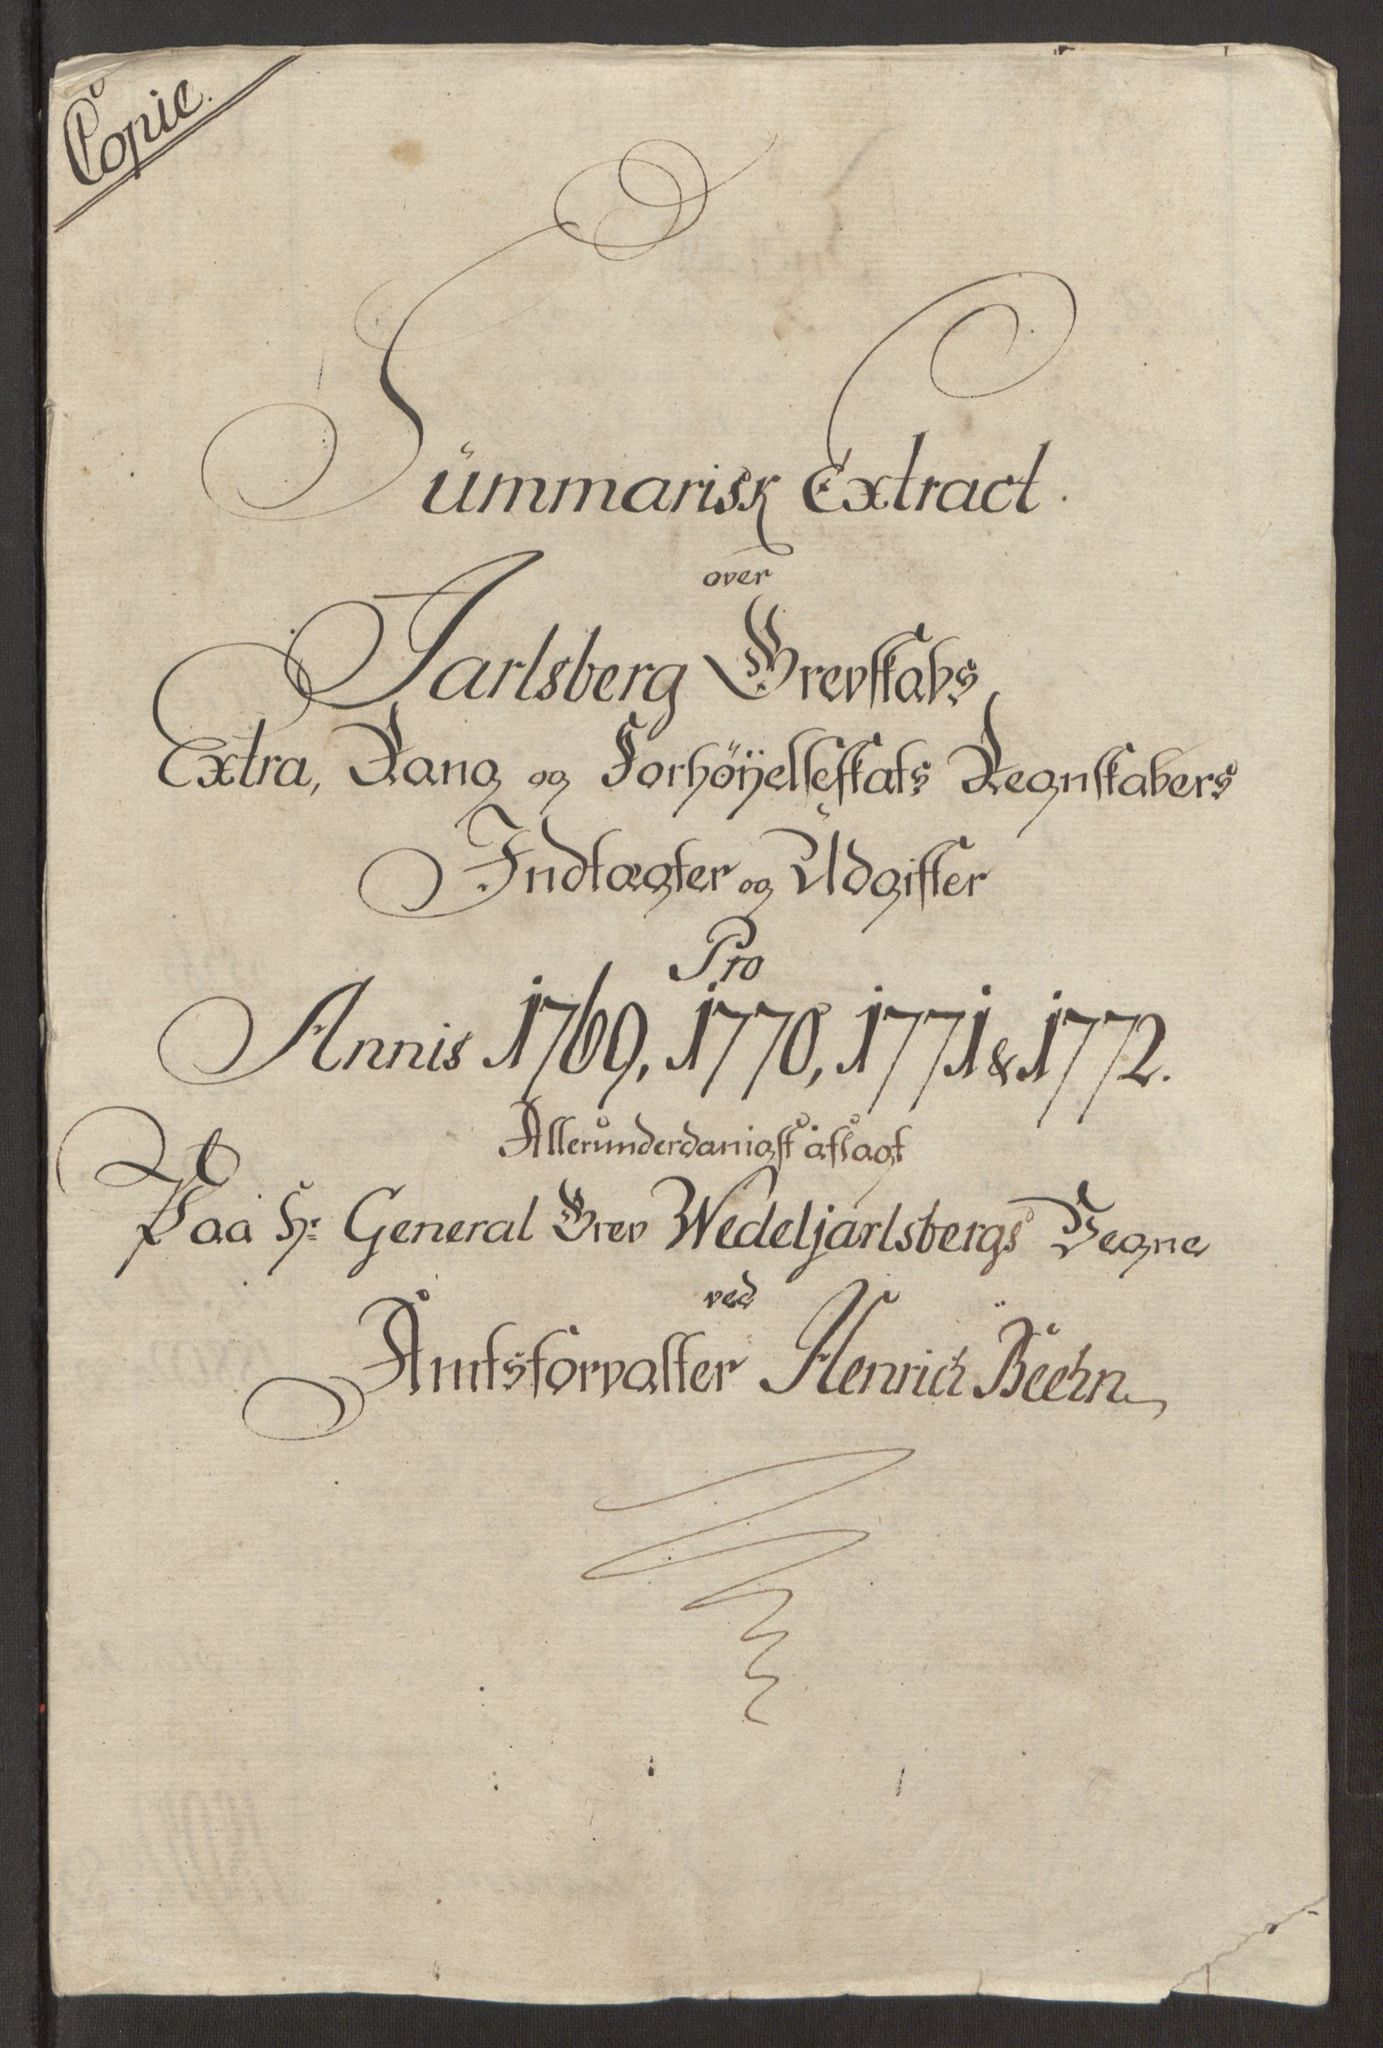 Copie.
Summarisk Extract.
over
Jarlsberg Grevskabs
Extra, Rang og Forhöÿelsesskats Regnskabers
Indtægter og Udgifter
Pro
Annis 1769, 1770, 1771 & 1772.
Allerunderdanigst aflagt
Paa Hr. General Grev Wedeljarlsbergs Vegne
ved
Amtsforvalter Henrich Beehn